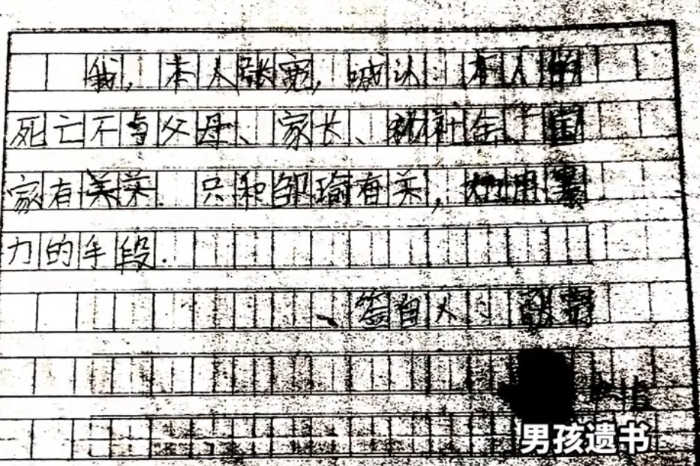 我,本人张宽,诚认:本人的
死亡不与父母、家长、社会、国
家有关系.只和邹瑜有关,她用暴
力的手段.
签自人:张宽
男孩遗书